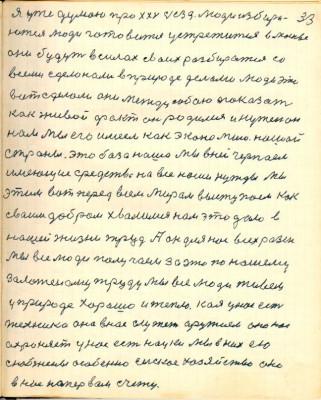 Я уже думаю про XXV съезд. Люди избира- 33
ются люди готовятся устремится в Москве
они будут в силах своих разбиратся со
всеми сделонами в природе делами люди это
вот сделали они между собою докозат
как живой факт он родился и нужен он
нам мы его имеем как экономию нашой
страны. Это база наша мы в ней черпаем
имеющие средства на все наши нужды мы
этим вот перед всем миром выступаем как
своим добром хвалимся нам это дало в
нашей жизни труд А он для нас всех развен
мы все люди получаем за это по нашему
заложеному труду мы все люди живем
у природе хорошо и тепло. Кая у нас ест
техника она в нас служит оружием она нас
охроняет у нас ест науки мы в них ею
снабжены особенно сельское хозяйство оно
в нас на первом счету.